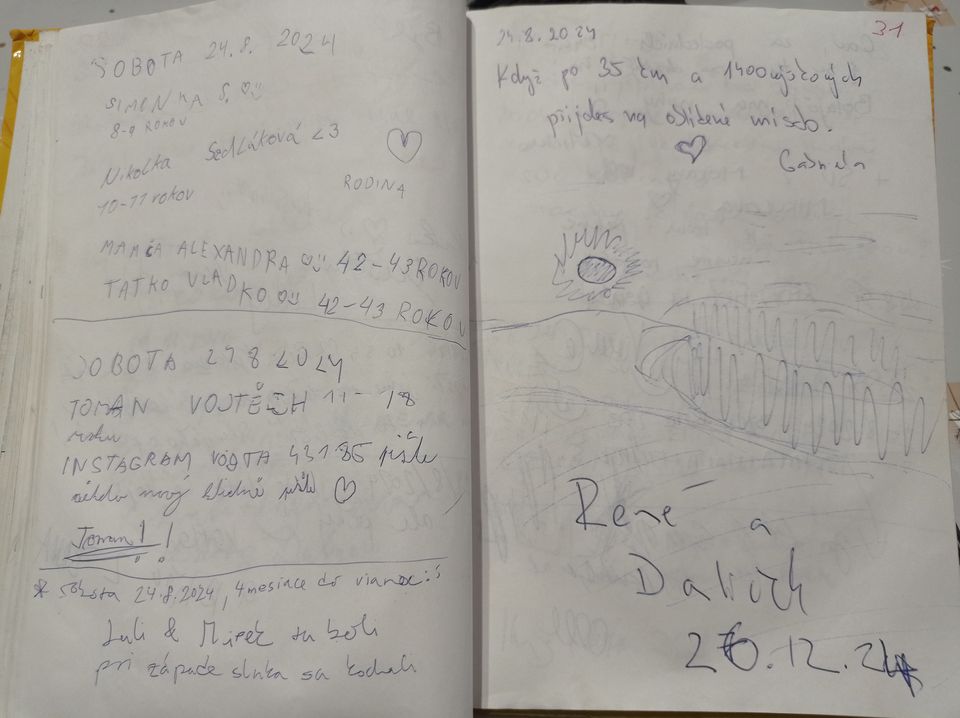 SOBOTA 24.8. 2024
SIMONKA S.
8-9 ROKOV
Nikolka Sedláková <3
10-11 rokov
RODINA
MAMČA ALEXANDRA 42-43 ROKOV
TATKO VLADKO 42-43 ROKOV
SOBOTA 24 8 2024
TOMAN VOJTĚCH 11-18
roku
INSTAGRAM VOJTA 43186 pište
někdo nový klidně pište
Toman!!
* Sobota 24.8.2024, 4 mesiace do vianoc
Luli & Mirek tu boli
pri západe slnka sa kochali
31
24.8.2024
Když po 35 km a 1400 výškových
přijdeš na oblíbené místo.
Gabriela
René a
Dalich
26.12.24